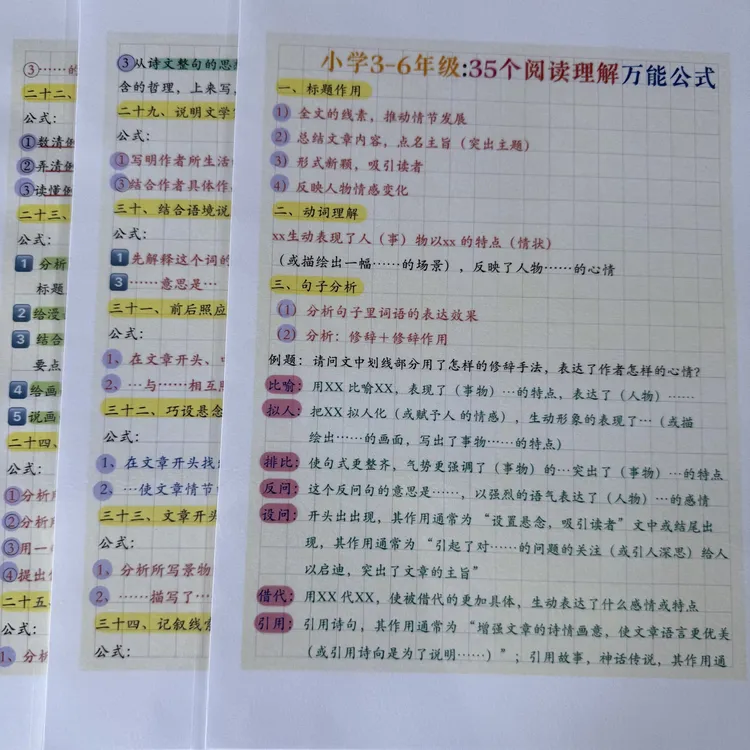 ③……的
二十二、
公式：
①数清
②弄清
③读懂
二十三、
公式：
1 分析
标题
2 给漫
3 结合
要点
4 给画
5 说画
二十四、
公式：
①分析
②分析
③用一
④提出
二十五、
公式：
1、分析
③从诗文整句的思
含的哲理，上来写，
二十九、说明文学
公式：
①写明作者所生活
③结合作者具体作
三十、结合语境说
公式：
1 先解释这个词的
3 ……意思是…
三十一、前后照应
公式：
1、在文章开头、
2、…与……相互照
三十二、巧设悬念
公式：
1、在文章开头找
2、…使文章情节
三十三、文章开头
公式：
1、分析所写景物
2、……描写了…
三十四、记叙线索
公式：
小学3-6年级:35个阅读理解万能公式
一、标题作用
1）全文的线素，推动情节发展
2）总结文章内容，点名主旨（突出主题）
3）形式新颖，吸引读者
4）反映人物情感变化
二、动词理解
xx生动表现了人（事）物以xx 的特点（情状）
（或描绘出一幅……的场景），反映了人物……的心情
三、句子分析
（1）分析句子里词语的表达效果
（2）分析：修辞＋修辞作用
例题：请问文中划线部分用了怎样的修辞手法，表达了作者怎样的心情？
比喻：用XX 比喻XX，表现了（事物）…的特点，表达了（人物）……
拟人：把XX 拟人化（或赋予人 的情感），生动形象的表现了…（或描
绘出……的画面，写出了事物……的特点）
排比：使句式更整齐，气势更强调了（事物）的…突出了（事物）…的特点
反问：这个反问句的意思是……，以强烈的语气表达了（人物）…的感情
设问：开头出出现，其作用通常为“设置悬念，吸引读者”文中或结尾出
现，其作用通常为“引起了对……的问题的关注（或引人深思）给人
以启迪，突出了文章的主旨”
借代：用XX 代XX，使被借代的更加具体，生动表达了什么感情或特点
引用：引用诗句，其作用通常为“增强文章的诗情画意，使文章语言更优美
（或引用诗向是为了说明……）”；引用故事，神话传说，其作用通